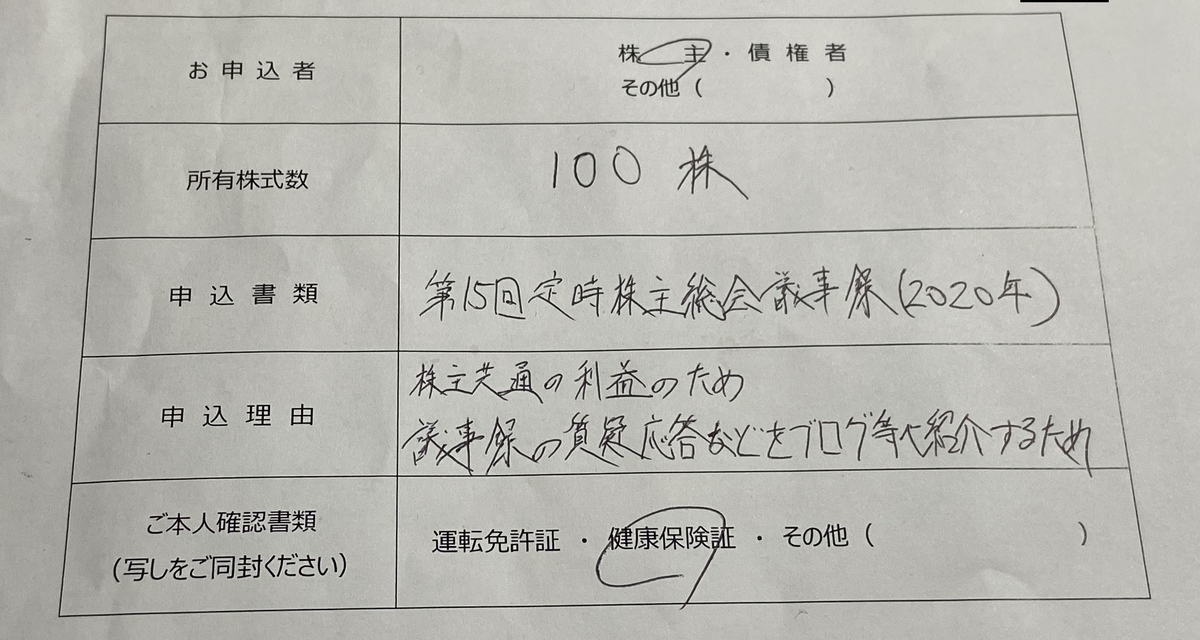 お申込者
株主・債権者
その他（　　　　　）
所有株式数
100 株
申込書類
第15回定時株主総会議事録(2020年)
申込理由
株主共通の利益のため
議事録の質疑応答などをブログ等で紹介するため
ご本人確認書類
(写しをご同封ください)
運転免許証 ・ 健康保険証 ・ その他（　　　　　　　　　）